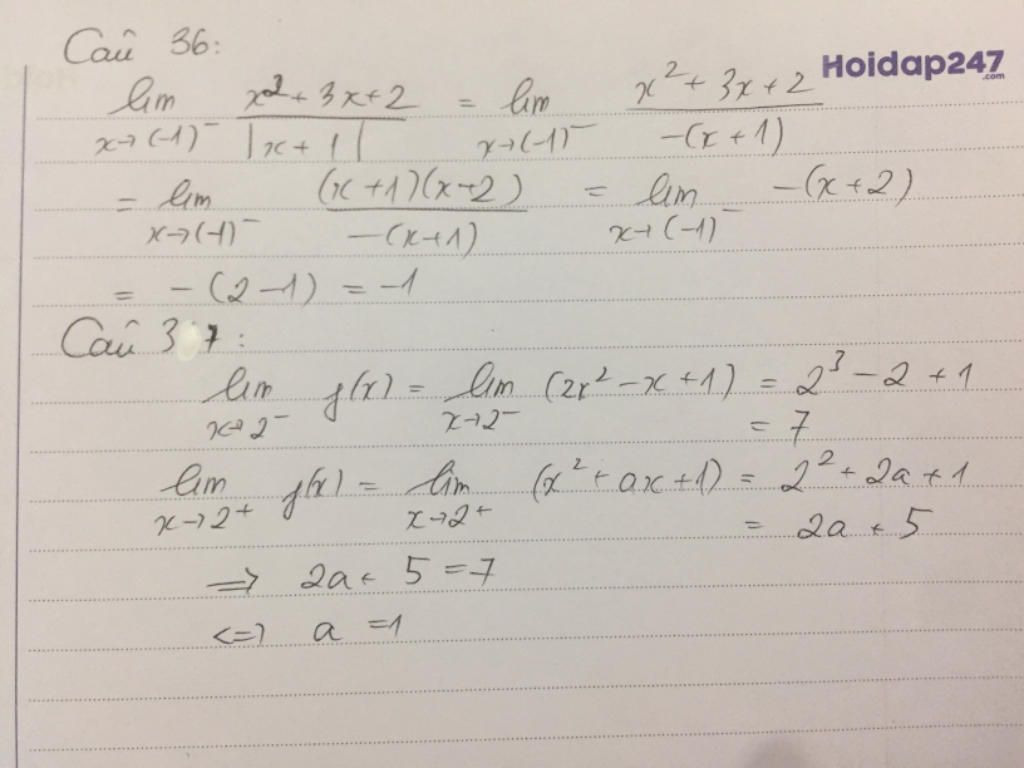 Câu 36:
Hoidap247.com
lim x→(-1)⁻ (x²+3x+2)/|x+1| = lim x→(-1)⁻ (x²+3x+2)/-(x+1)
= lim x→(-1)⁻ (x+1)(x+2)/-(x+1) = lim x→(-1)⁻ -(x+2)
= -(2-1) = -1
Câu 37:
lim x→2⁻ f(x) = lim x→2⁻ (2x²-x+1) = 2³-2+1
= 7
lim x→2⁺ f(x) = lim x→2⁺ (x²+ax+1) = 2²+2a+1
= 2a+5
=> 2a+5=7
<=> a=1